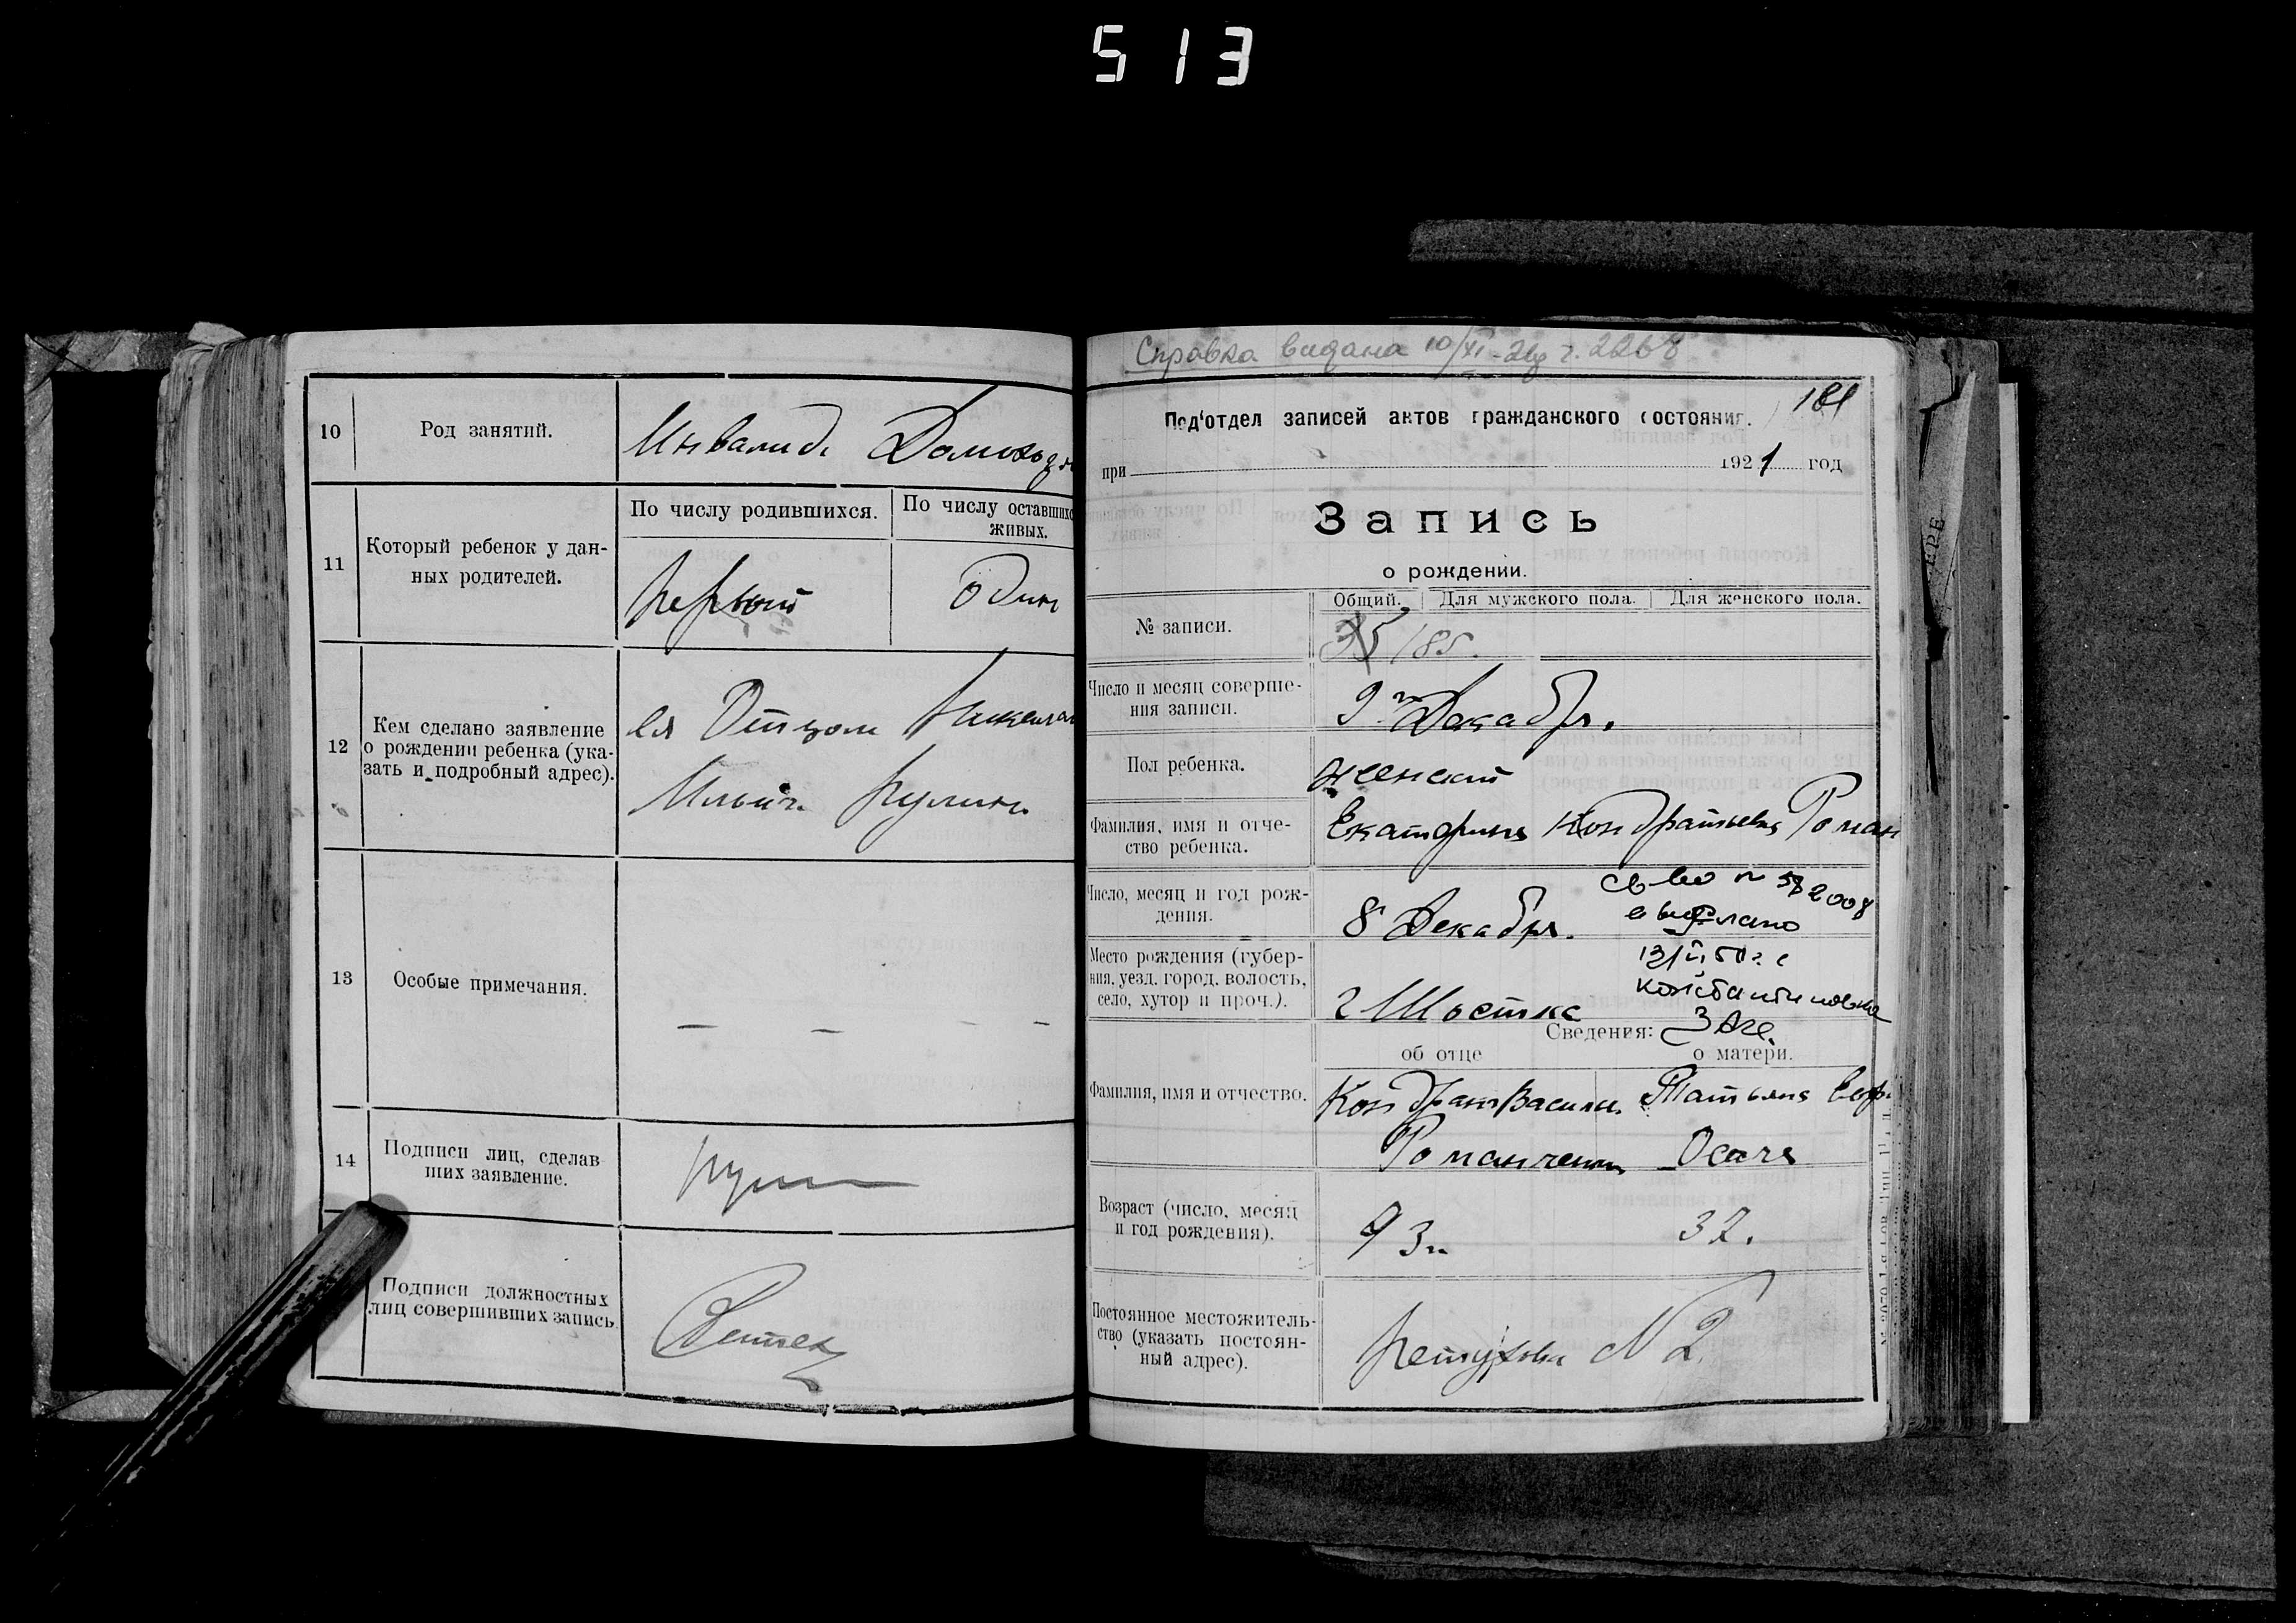 513
10
Род занятий.
Инвалидъ
11
Который ребенок у дан-
ных родителей.
По числу родившихся.
По числу оставшихс
живых.
первый
один
12
Кем сделано заявление
о рождении ребенка (ука-
зать и подробный адрес).
Отцом
Ильич
13
Особые примечания.
— — — —
14
Подписи лиц, сделав
ших заявление.
Подписи должностных
лиц совершивших запись
Справка видана 10/XI
181
Под'отдел записей актов гражданского состояния.
при
1921 год
Запись
о рождении.
Общий. Для мужского пола. Для женского пола.
№ записи.
35 185.
Число и месяц соверше-
ния записи.
9го Декабр.
Пол ребенка.
женский
Фамилия, имя и отче-
ство ребенка.
Екатерина Кондратьевна Роман
Число, месяц и год рож-
дения.
8 Декабря.
св-во №
Место рождения (губер-
ния, уезд, город, волость,
село, хутор и проч.).
г Шостка
ЗАГС.
Сведения:
об отце
о матери.
Фамилия, имя и отчество.
Кондрат Васильи.
Татьяна Ефр.
Романченко
Осача
Возраст (число, месяц
и год рождения).
32.
Постоянное местожитель-
ство (указать постоян-
ный адрес).
Петухова N 2.